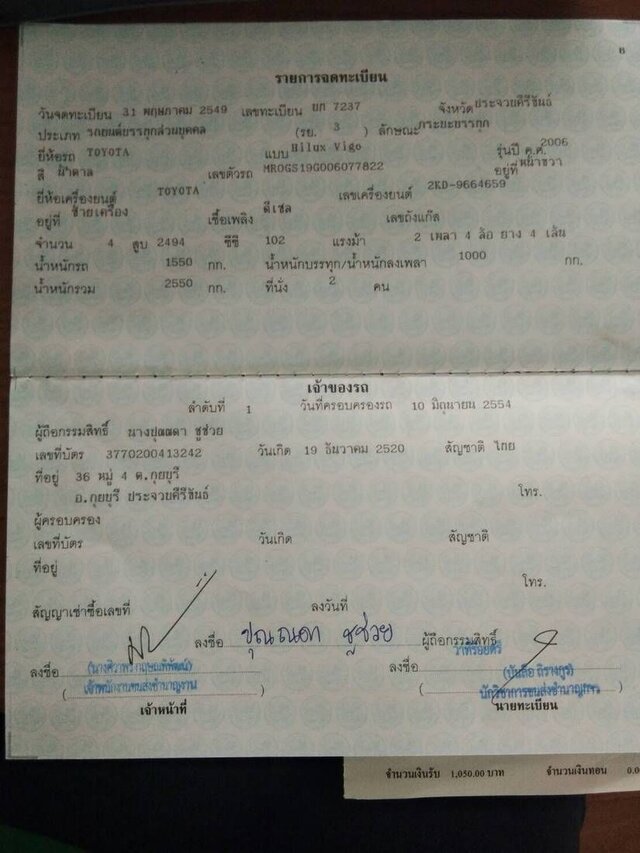 รายการจดทะเบียน
วันจดทะเบียน 31 พฤษภาคม 2549 เลขทะเบียน บก 7237 จังหวัด ประจวบคีรีขันธ์
ประเภท รถยนต์บรรทุกส่วนบุคคล (รย. 3 ) ลักษณะ กระบะบรรทุก
ยี่ห้อรถ TOYOTA แบบ Hilux Vigo รุ่นปี ค.ศ. 2006
สี ฟ้า เลขตัวรถ MROGS19G006077822 อยู่ที่ หน้าขวา
ยี่ห้อเครื่องยนต์ TOYOTA เลขเครื่องยนต์ 2KD-9664659
อยู่ที่ ซ้ายเครื่อง เชื้อเพลิง ดีเซล เลขถังแก๊ส
จำนวน 4 สูบ 2494 ซีซี 102 แรงม้า 2 เพลา 4 ล้อ ยาง 4 เส้น
น้ำหนักรถ 1550 กก. น้ำหนักบรรทุก/น้ำหนักลงเพลา 1000 กก.
น้ำหนักรวม 2550 กก. ที่นั่ง 2 คน
เจ้าของรถ
ลำดับที่ 1 วันที่ครอบครองรถ 10 มิถุนายน 2554
ผู้ถือกรรมสิทธิ์ นางปุณณดา ชูช่วย
เลขที่บัตร 3770200413242 วันเกิด 19 ธันวาคม 2520 สัญชาติ ไทย
ที่อยู่ 36 หมู่ 4 ต.กุยบุรี
อ.กุยบุรี ประจวบคีรีขันธ์ โทร.
ผู้ครอบครอง
เลขที่บัตร วันเกิด สัญชาติ
ที่อยู่
โทร.
สัญญาเช่าซื้อเลขที่ ลงวันที่
ลงชื่อ ปุณณดา ชูช่วย ผู้ถือกรรมสิทธิ์
ว่าที่ร้อยตรี
ลงชื่อ ลงชื่อ
เจ้าพนักงานขนส่งชำนาญงาน นักวิชาการขนส่งชำนาญการ
เจ้าหน้าที่ นายทะเบียน
จำนวนเงินรับ 1,050.00 บาท จำนวนเงินทอน